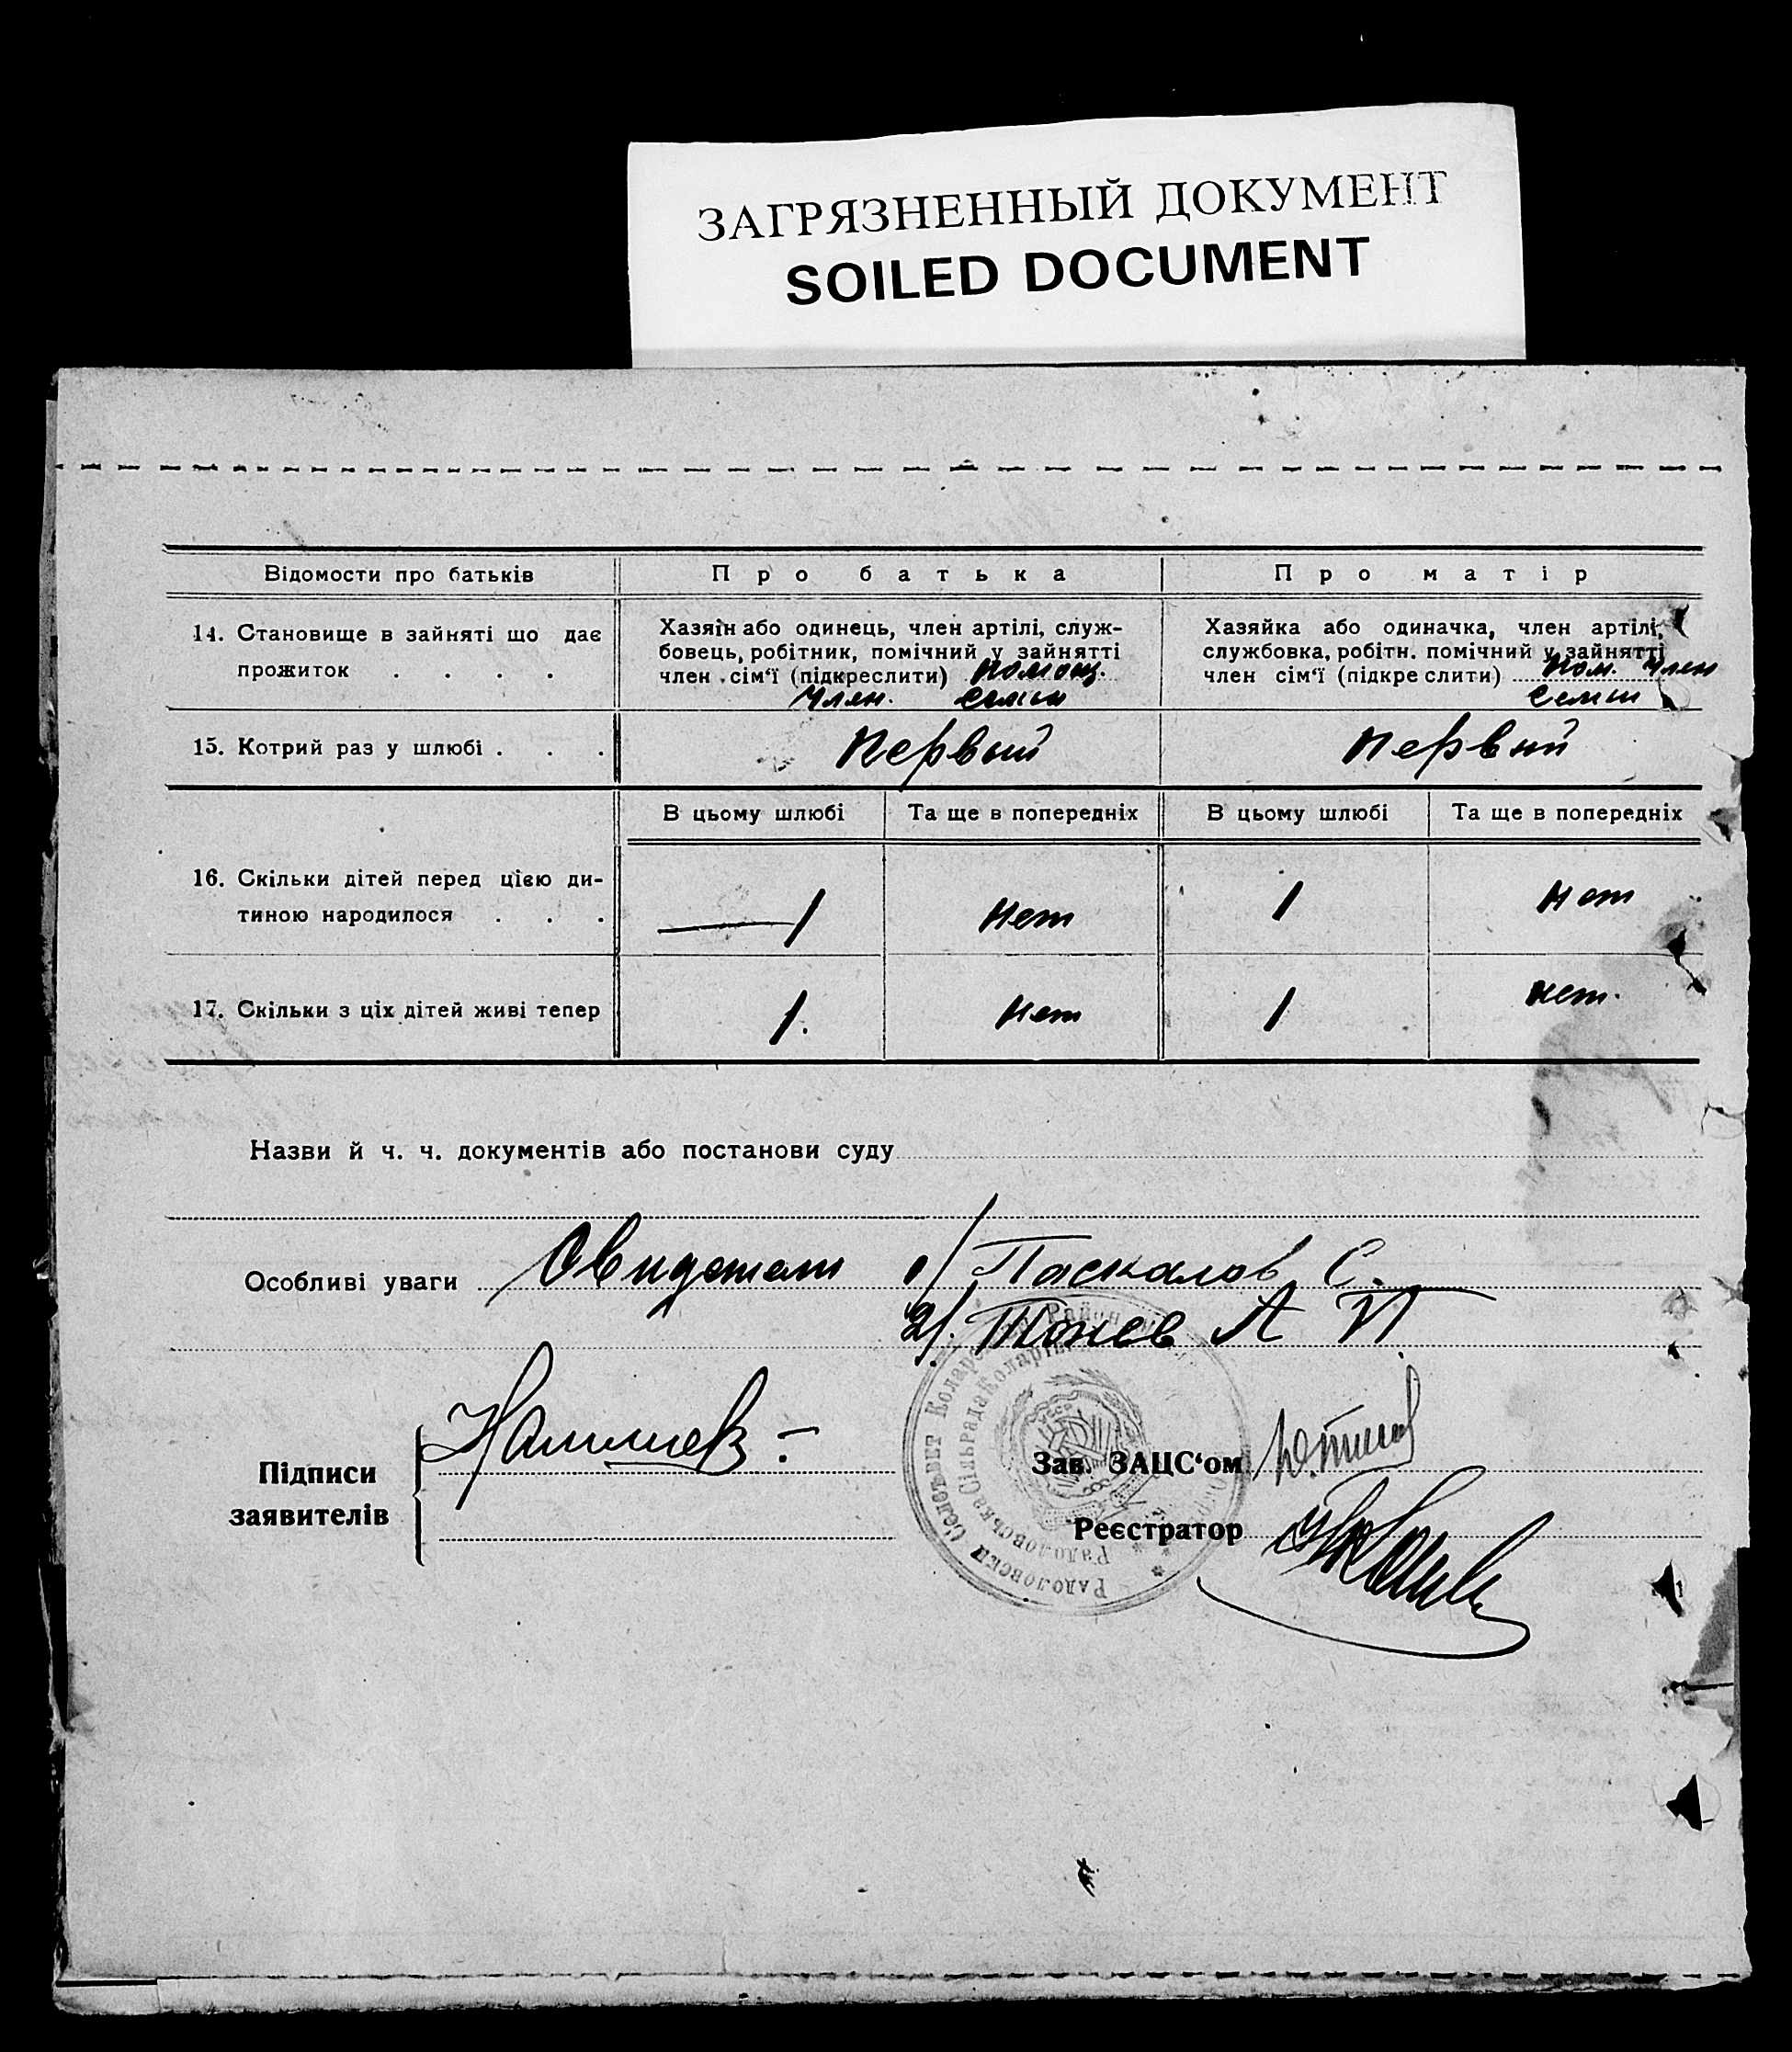 ЗАГРЯЗНЕННЫЙ ДОКУМЕНТ
SOILED DOCUMENT
Відомости про батьків Про батька Про матір
14. Становище в зайняті що дає прожиток . . . .
Хазяїн або одинець, член артілі, служ-
бовець, робітник, помічний у зайнятті
член сім‘ї (підкреслити) помощ.
член. семьи
Хазяйка або одиначка, член артілі,
службовка, робітн. помічний у зайнятті
член сім‘ї (підкреслити) пом. член
семьи
15. Котрий раз у шлюбі . . . Первый Первый
В цьому шлюбі Та ще в попередніх В цьому шлюбі Та ще в попередніх
16. Скільки дітей перед цією ди-
тиною народилося . . . 1 нет 1 нет
17. Скільки з ціх дітей живі тепер 1. нет 1 нет.
Назви й ч. ч. документів або постанови суду
Особливі уваги Свидетели 1/ Паскалов С.
2/. Тонев А П.
Підписи
заявителів
Зав. ЗАЦС‘ом
Реєстратор
Радоловски Селсьвет
Радоловська Сільрада